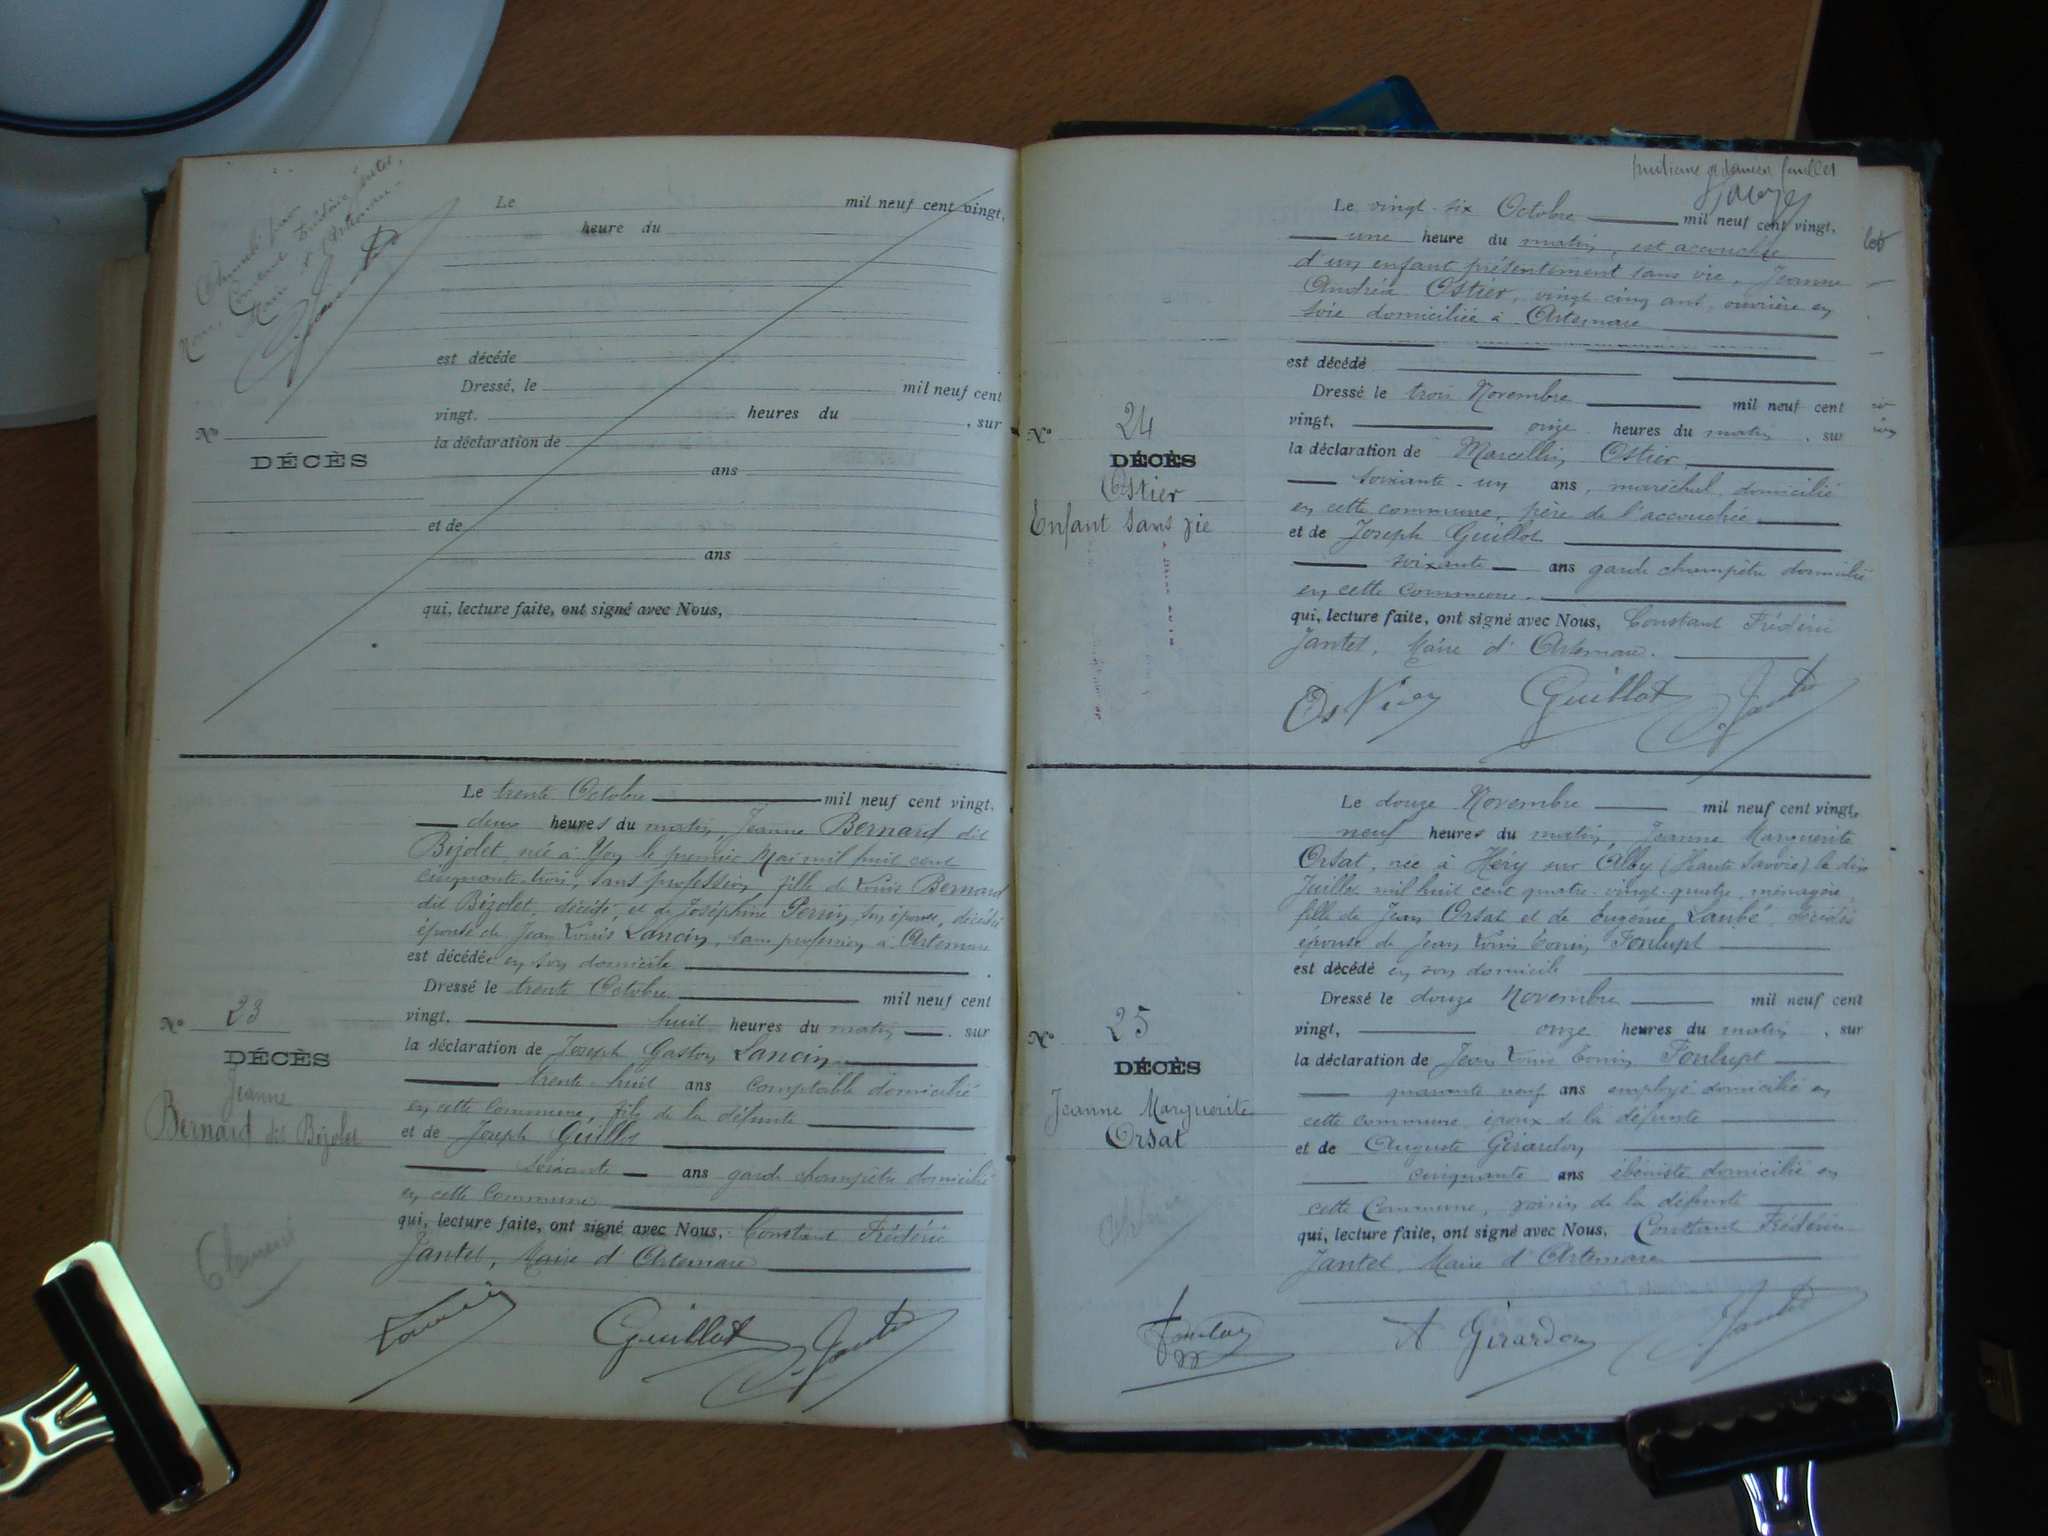 Annulé par
Nous, Constant Frédéric Jantet,
Maire d'Artemare.
Le mil neuf cent vingt,
heure du
est décédé
Dressé, le mil neuf cent
vingt. heures du , sur
No
la déclaration de
DÉCÈS
ans
et de
ans
qui, lecture faite, ont signé avec Nous,
Le trente Octobre mil neuf cent vingt.
deux heures du matin, Jeanne Bernard dit
Bizolet, née à Yon le premier Mai mil huit cent
cinquante-trois, sans profession, fille de Louis Bernard
dit Bizolet, décédé, et de Joséphine Perrin, son épouse, décédée
épouse de Jean Louis Lancin, sans profession à Artemare
est décédée en son domicile
Dressé le trente Octobre mil neuf cent
No 23
vingt. huit heures du matin . sur
DÉCÈS
la déclaration de Joseph Gaston Lancin
Jeanne
trente-huit ans comptable domicilié
en cette commune, fils de la défunte
Bernard dit Bizolet
et de Joseph Guillot
soixante ans garde champêtre domicilié
en cette Commune
qui, lecture faite, ont signé avec Nous, Constant Frédéric
Jantet, Maire d'Artemare
Lancin Guillot Jantet
Le vingt-six Octobre mil neuf cent vingt.
une heure du matin, est accouchée
d'un enfant présentement sans vie, Jeanne
Andréa Ostier, vingt cinq ans, ouvrière en
soie domiciliée à Artemare
est décédé
Dressé le trois Novembre mil neuf cent
No 24
vingt, onze heures du matin , sur
DÉCÈS
la déclaration de Marcellin Ostier,
Ostier
soixante-un ans, maréchal, domicilié
Enfant sans vie
en cette commune, père de l'accouchée
et de Joseph Guillot
soixante ans garde champêtre domicilié
en cette commune.
qui, lecture faite, ont signé avec Nous, Constant Frédéric
Jantet, Maire d'Artemare.
Ostier Guillot Jantet
Le douze Novembre mil neuf cent vingt,
neuf heures du matin, Jeanne Marguerite
Orsat, née à Héry sur Alby (Haute Savoie) le dix
Juillet mil huit cent quatre-vingt-quatre, ménagère
fille de Jean Orsat et de Eugénie Laubé décédés
épouse de Jean Louis Tonin Foulupt
est décédé en son domicile
Dressé le douze Novembre mil neuf cent
No 25
vingt, onze heures du matin , sur
DÉCÈS
la déclaration de Jean Louis Tonin Foulupt
Jeanne Marguerite
Orsat
quarante neuf ans employé domicilié en
cette commune, époux de la défunte
et de Auguste Girardon
cinquante ans ébéniste domicilié en
cette Commune, voisin de la défunte
qui, lecture faite, ont signé avec Nous, Constant Frédéric
Jantet, Maire d'Artemare
A Girardon Jantet